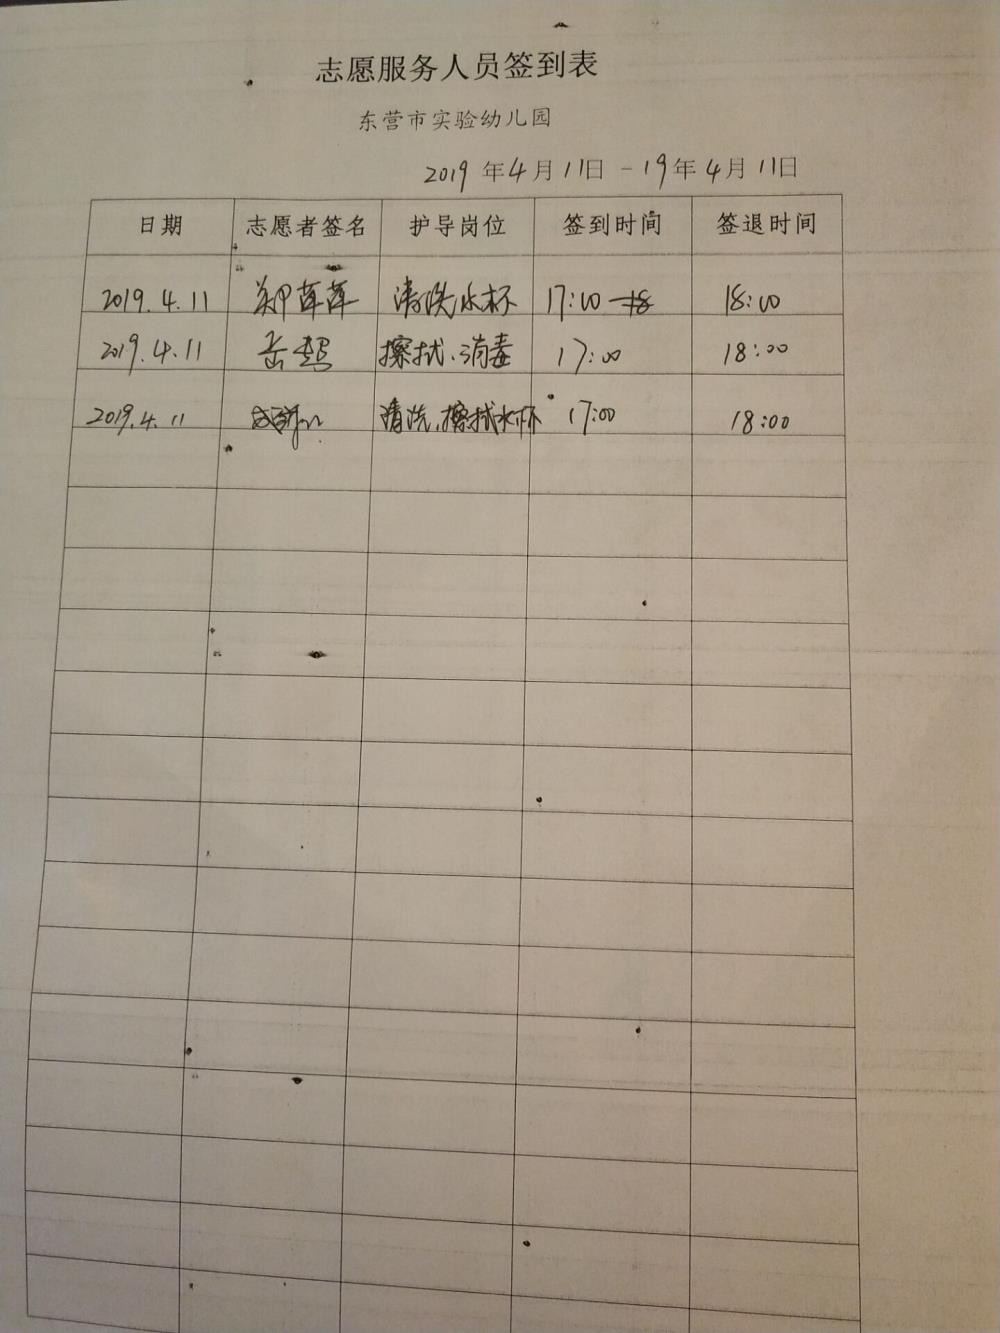 志愿服务人员签到表
东营市实验幼儿园
2019年4月11日-19年4月11日
日期 志愿者签名 护导岗位 签到时间 签退时间
2019.4.11 郑萍萍 清洗水杯 17:00 18:00
2019.4.11 岳超 擦拭、消毒 17:00 18:00
2019.4.11 清洗、擦拭水杯 17:00 18:00